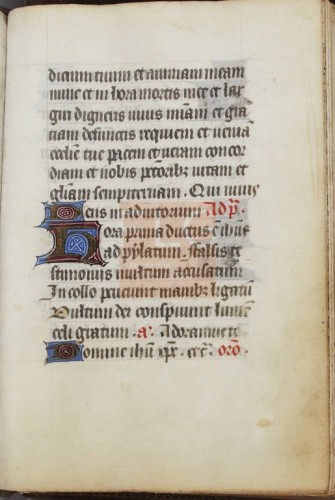 dicium tuum et animam meam
nunc et in hora mortis mee et lar
giri digneris viuis miam et gra
ciam defunctis requiem et venia
ecclie tue pacem et veram concor
diam et nobis pctoribz vitam et
gliam sempiternam. Qui viuis
Deus in adiutorium Ad p.
Hora prima ductus e ihus
ad pylatum. falsis te
stimonijs multum accusatum
In collo percutiunt manibz ligatu
Vultum dei conspuunt lumen
celi gratum. a. Adoramus te
Domine ihu xpe. etc. oro.